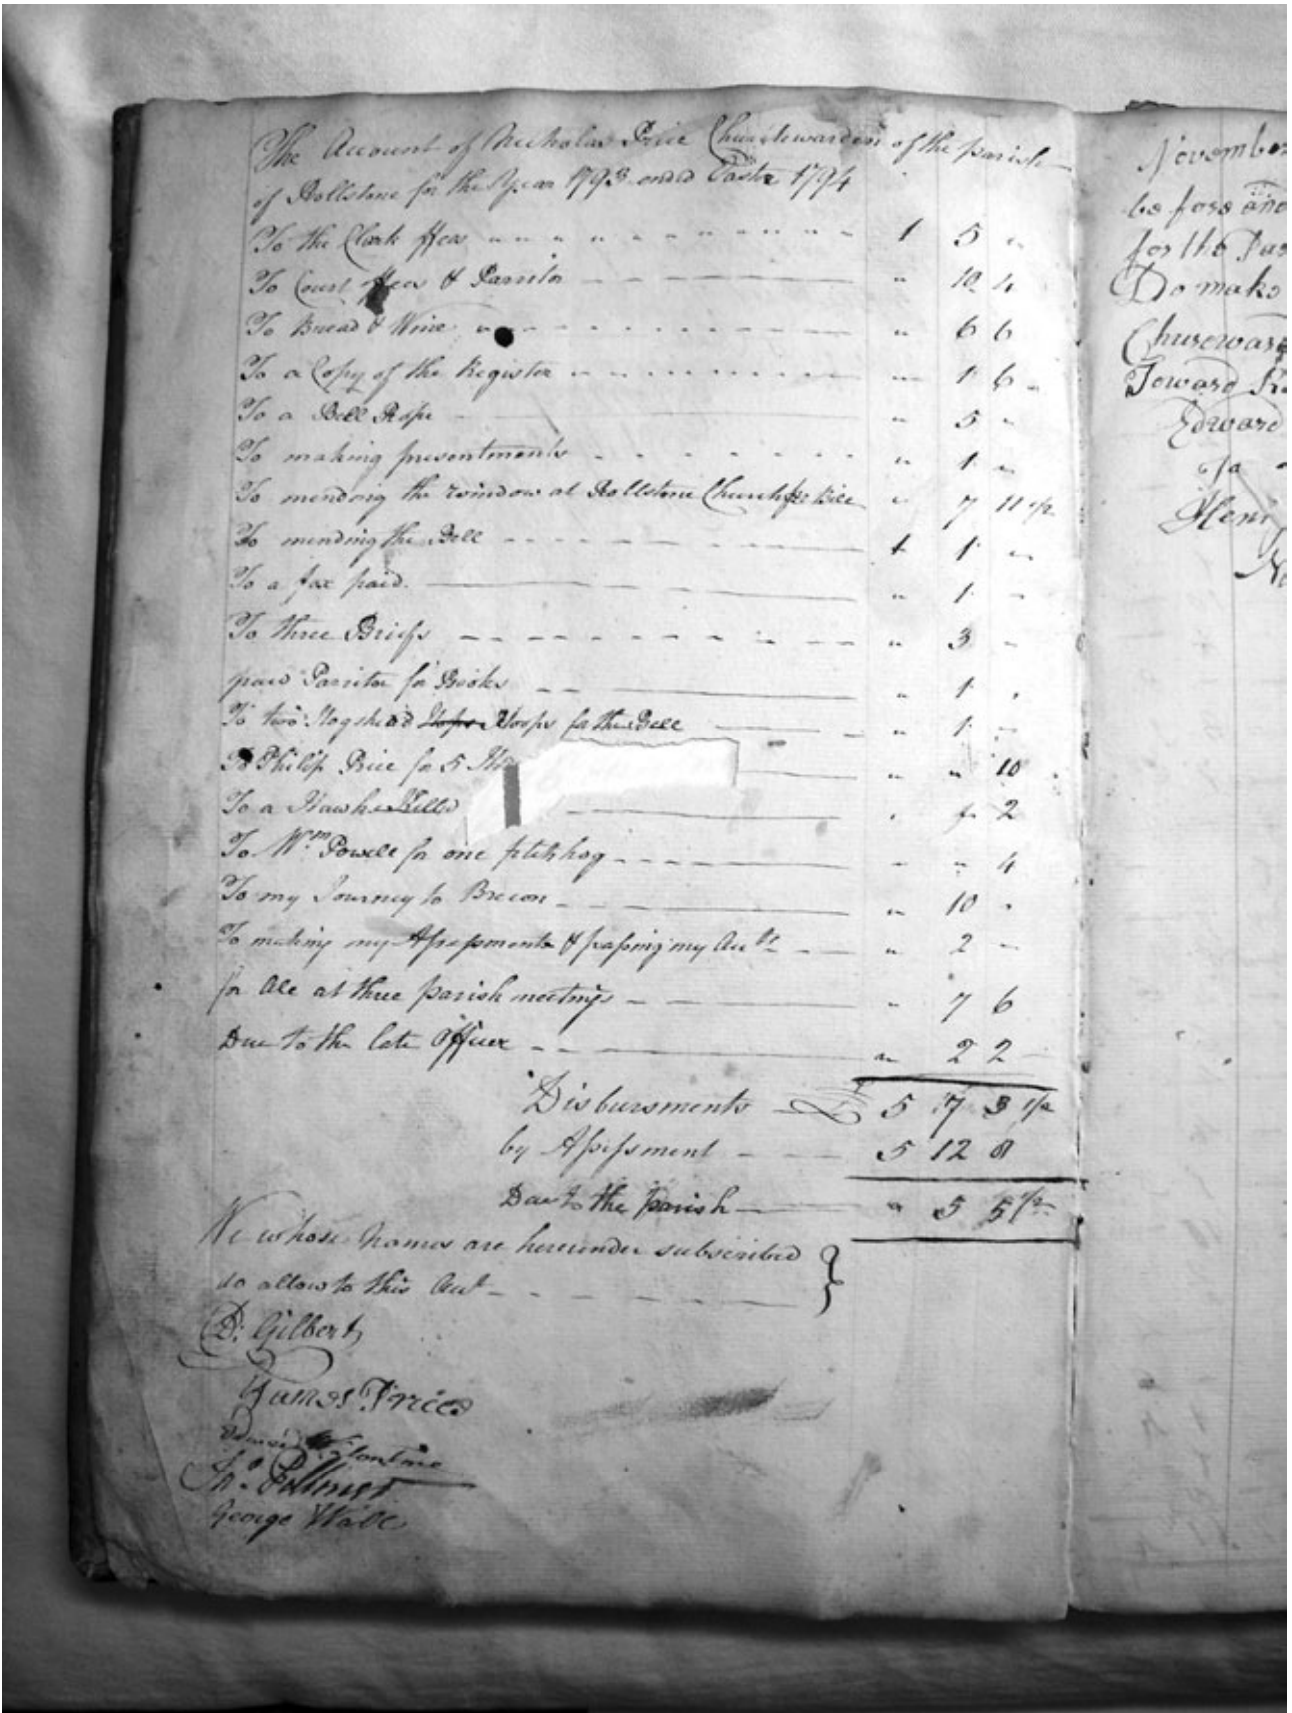 The Account of Nicholas Price Churchwarden of the parish
of Rollstone for the Year 1793 ended Easter 1794
To the Clark ffees 1 5 "
To Court ffees & Parritor " 10 4
To Bread & Wine " 6 6
To a Copy of the Register " 1 6
To a Bell Rope " 5 "
To making presentments " 1 "
To mending the window at Rollstone Church per Bill " 7 11 1/2
To mending the Bell 1 1 "
To a fox paid " 1 "
To three Briefs " 3 "
paid Parritor for Books " 1 "
To two Hogshead Hoops for the Bell " 1 "
To Philip Price for 5 " " 10
To a Hawk 2
To Wm Powell for one " " 4
To my Journey to Brecon " 10 "
To making my Assessments & passing my Acts " 2 "
for Ale at three parish meetings " 7 6
Due to the late Officer " 2 2
Disbursments £ 5 7 3 1/2
by Assessment 5 12
Due to the parish " 5 5 1/2
We whose Names are hereunder subscribed
do allow to this Act
D: Gilbert
James Price
George Wall
November
be fore and
for the
Do make
Edward